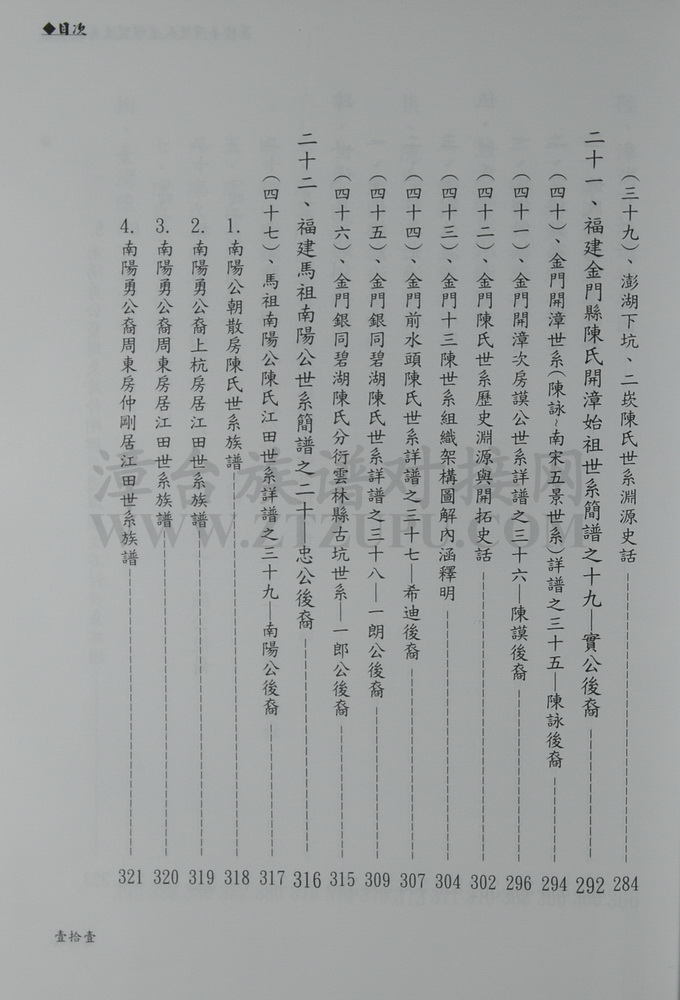 ◆目次
(三十九)、澎湖下坑、二崁陳氏世系淵源史話 284
二十一、福建金門縣陳氏開漳始祖世系簡譜之十九—實公後裔 292
(四十)、金門開漳世系(陳詠~南宋五景世系)詳譜之三十五—陳詠後裔 294
(四十一)、金門開漳次房謨公世系詳譜之三十六—陳謨後裔 296
(四十二)、金門陳氏世系歷史淵源與開拓史話 302
(四十三)、金門十三陳世系組織架構圖解內涵釋明 304
(四十四)、金門前水頭陳氏世系詳譜之三十七—希迪後裔 307
(四十五)、金門銀同碧湖陳氏世系詳譜之三十八—一朗公後裔 309
(四十六)、金門銀同碧湖陳氏分衍雲林縣古坑世系—一郎公後裔 315
二十二、福建馬祖南陽公世系簡譜之二十 忠公後裔 316
(四十七)、馬祖南陽公陳氏江田世系詳譜之三十九—南陽公後裔 317
1. 南陽公朝散房陳氏世系族譜 318
2. 南陽勇公裔上杭房居江田世系族譜 319
3. 南陽勇公裔周東房居江田世系族譜 320
4. 南陽勇公裔周東房仲剛居江田世系族譜 321
壹拾壹
漳台族譜對接网
WWW.ZTZUPU.COM